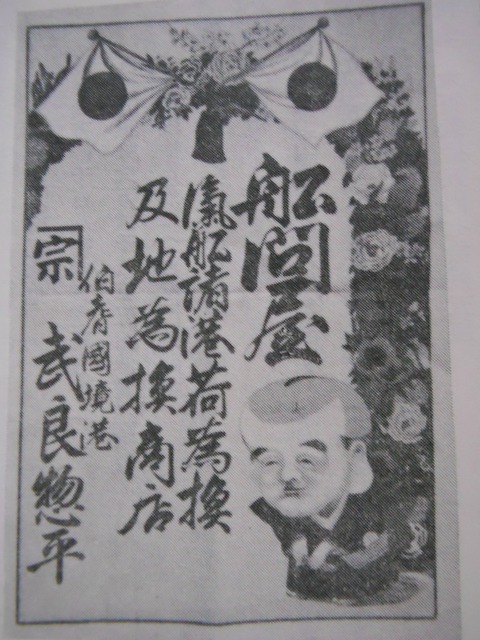 船問屋
滊船諸港荷為換
及地為換商店
伯耆國境港
宗 武良惣平